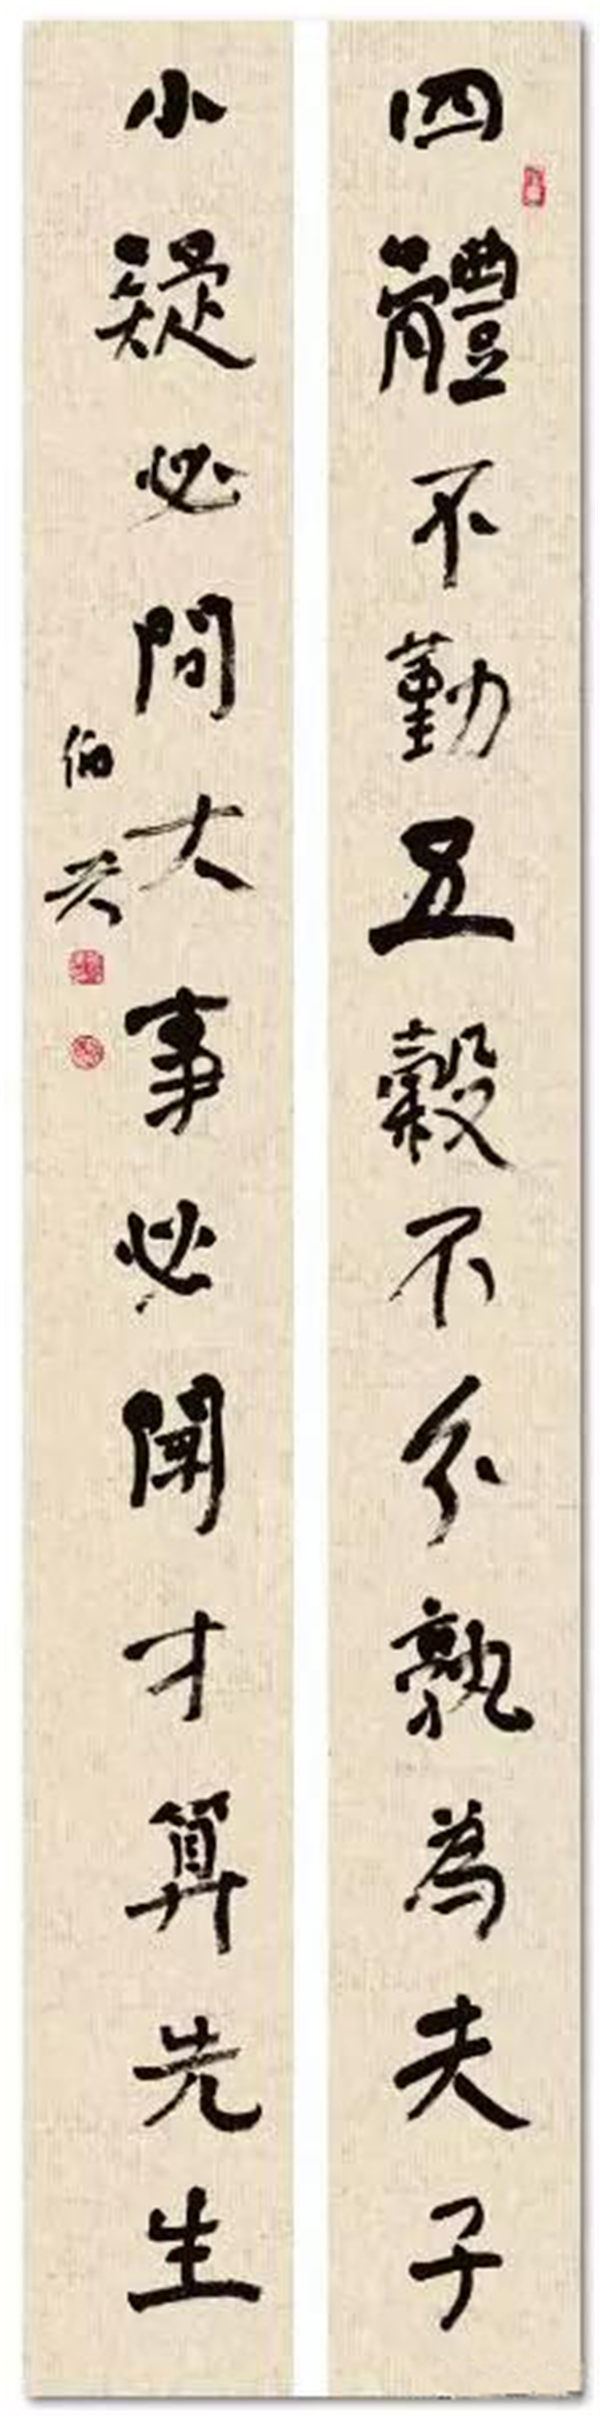 四體不勤五穀不分孰為夫子
小疑必問大事必聞才算先生
伯